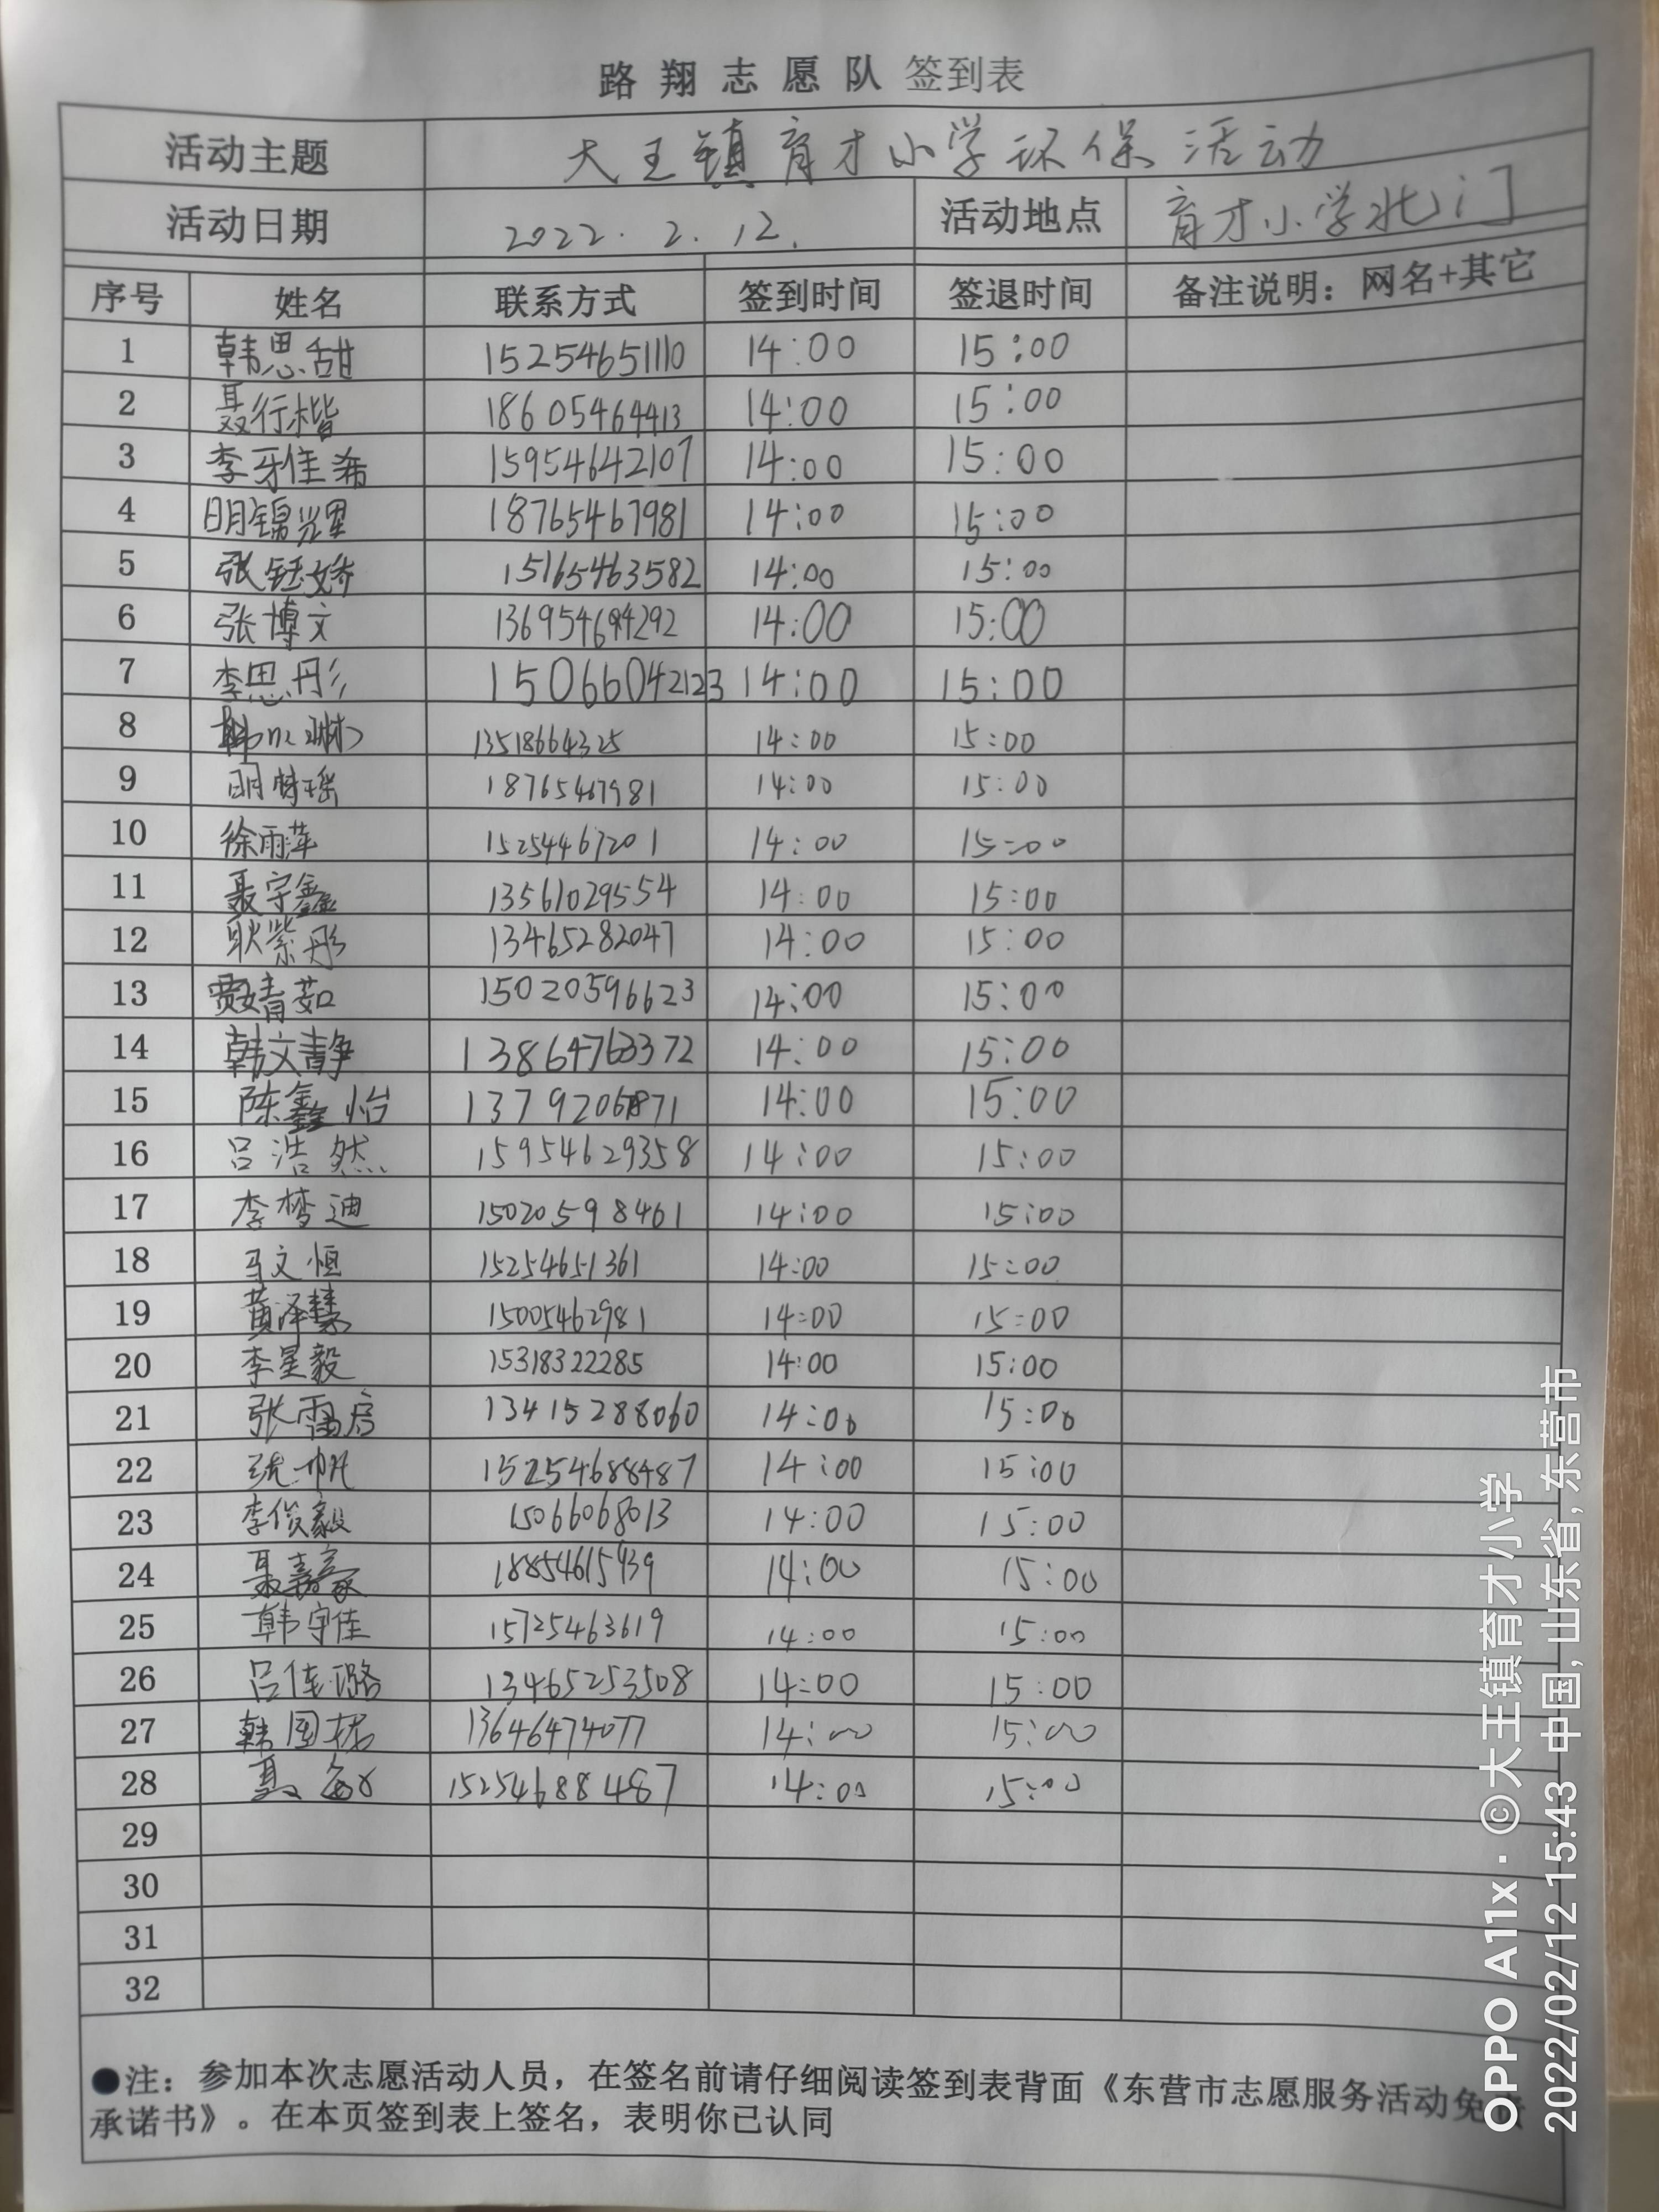 路翔志愿队 签到表
活动主题 大王镇育才小学环保活动
活动日期 2022.2.12. 活动地点 育才小学北门
序号 姓名 联系方式 签到时间 签退时间 备注说明：网名+其它
1 韩思甜 15254651110 14:00 15:00
2 聂行楷 18605464413 14:00 15:00
3 李牙佳希 15954642107 14:00 15:00
4 明锦辉 18765467981 14:00 15:00
5 张钰娇 15165463582 14:00 15:00
6 张博文 14:00 15:00
7 李思彤 15066042123 14:00 15:00
8 13518664325 14:00 15:00
9 18765467981 14:00 15:00
10 徐雨萍 15254467201 14:00 15:00
11 聂宇鑫 13561029554 14:00 15:00
12 耿紫彤 13465282047 14:00 15:00
13 贾婧茹 15020596623 14:00 15:00
14 韩文静 13864763372 14:00 15:00
15 陈鑫怡 14:00 15:00
16 吕浩然 15954629358 14:00 15:00
17 李梦迪 15020598461 14:00 15:00
18 马文恒 15254651361 14:00 15:00
19 黄泽慧 15005462981 14:00 15:00
20 李星毅 15318322285 14:00 15:00
21 13415288060 14:00 15:00
22 15254688487 14:00 15:00
23 李俊毅 15066068013 14:00 15:00
24 聂嘉豪 18854615939 14:00 15:00
25 韩宇佳 15725463619 14:00 15:00
26 吕佳璐 13465253508 14:00 15:00
27 13646474077 14:00 15:00
28 15254688487 14:00 15:00
29
30
31
32
●注：参加本次志愿活动人员，在签名前请仔细阅读签到表背面《东营市志愿服务活动免
承诺书》。在本页签到表上签名，表明你已认同
OPPO A11x · ©大王镇育才小学
2022/02/12 15:43 中国, 山东省, 东营市